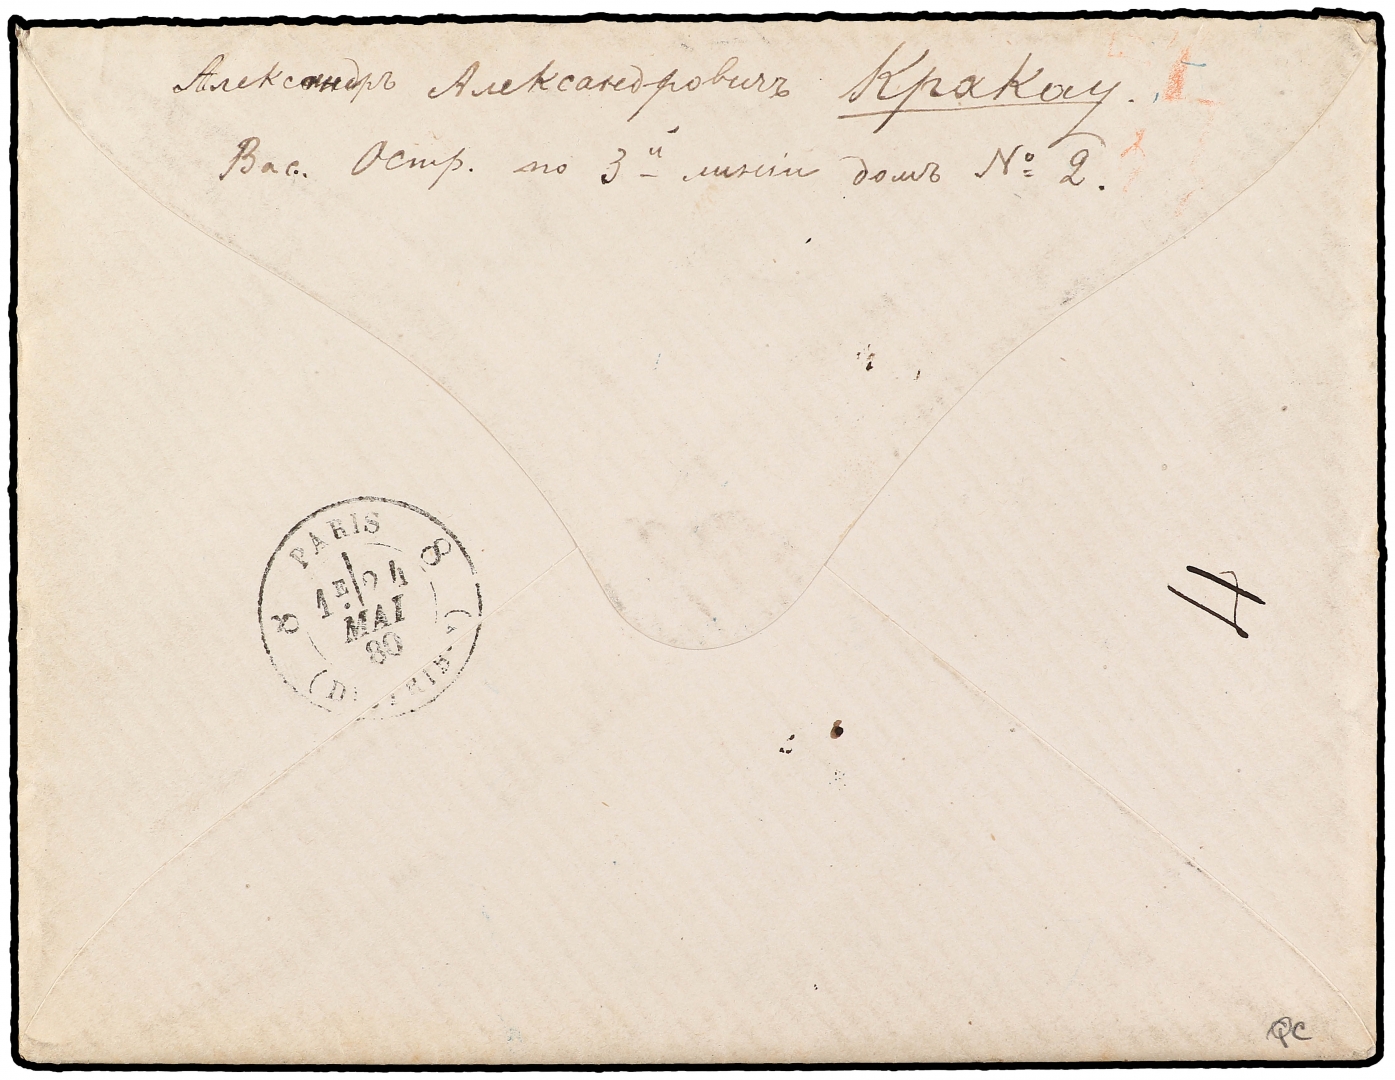 Александръ Александровичъ Кракау.
Вас. Остр. по 3й линіи домъ № 2.
PARIS
8 8
1E 24
MAI
80
4
QC